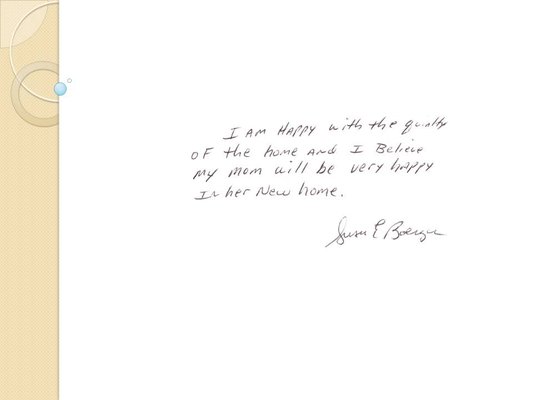 I AM HAPPY with the quality
OF the home AND I Believe
my mom will be very happy
In her New home.
Susan E